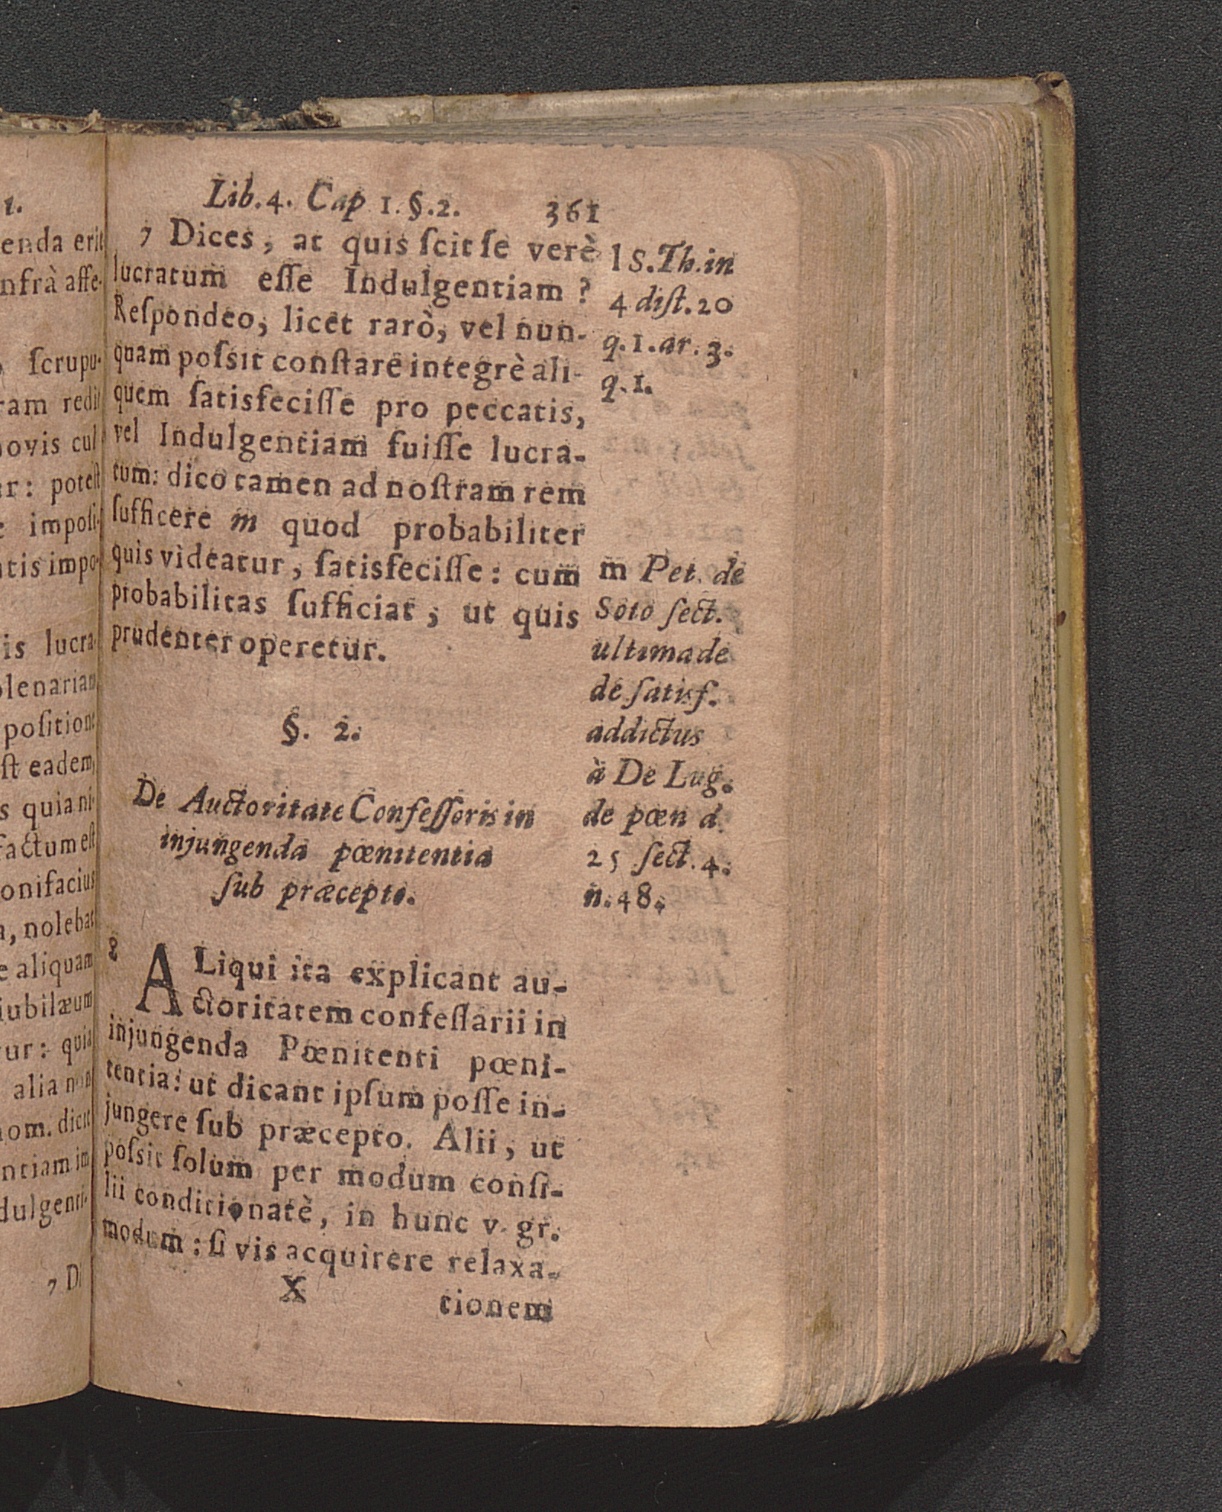 1.
enda erit
nfrà aſſe-
ſcrupu-
ram redit
novis cul
ar: poteſt
e impoſi-
atis impo-
is lucra-
plenariam
poſitione
ſt eadem,
s quia ni-
factum eſt
onifacius
a, nolebat
e aliquam
iubilæum
ur: quia
alia non
nom. dicit
ntiam im
dulgenti-
7 Di
Lib. 4. Cap 1. §. 2. 361
7 Dices, at quis ſcit ſe verè
lucratum eſſe Indulgentiam ?
Reſpondeo, licet rarò, vel nun-
quam poſsit conſtare integrè ali-
quem ſatisfeciſſe pro peccatis,
vel Indulgentiam fuiſſe lucra-
tum: dico tamen ad noſtram rem
ſufficere m quod probabiliter
quis videatur, ſatisfeciſſe: cum
probabilitas ſufficiat, ut quis
prudenter operetur.
l S. Th. in
4 diſt. 20
q. 1. ar. 3.
q. 1.
m Pet. de
Soto ſect.
ultima de
de ſatiſf.
addictus
à De Lug.
de pœn d.
25 ſect. 4.
n. 48.
§. 2.
De Auctoritate Confeſſoris in
injungenda pœnitentia
ſub præcepto.
8 ALiqui ita explicant au-
ctoritatem confeſſarii in
injungenda Pœnitenti pœni-
tentia: ut dicant ipſum poſſe in-
jungere ſub præcepto. Alii, ut
poſsit ſolum per modum conſi-
lii conditionatè, in hunc v. gr.
modum: ſi vis acquirere relaxa-
X tionem